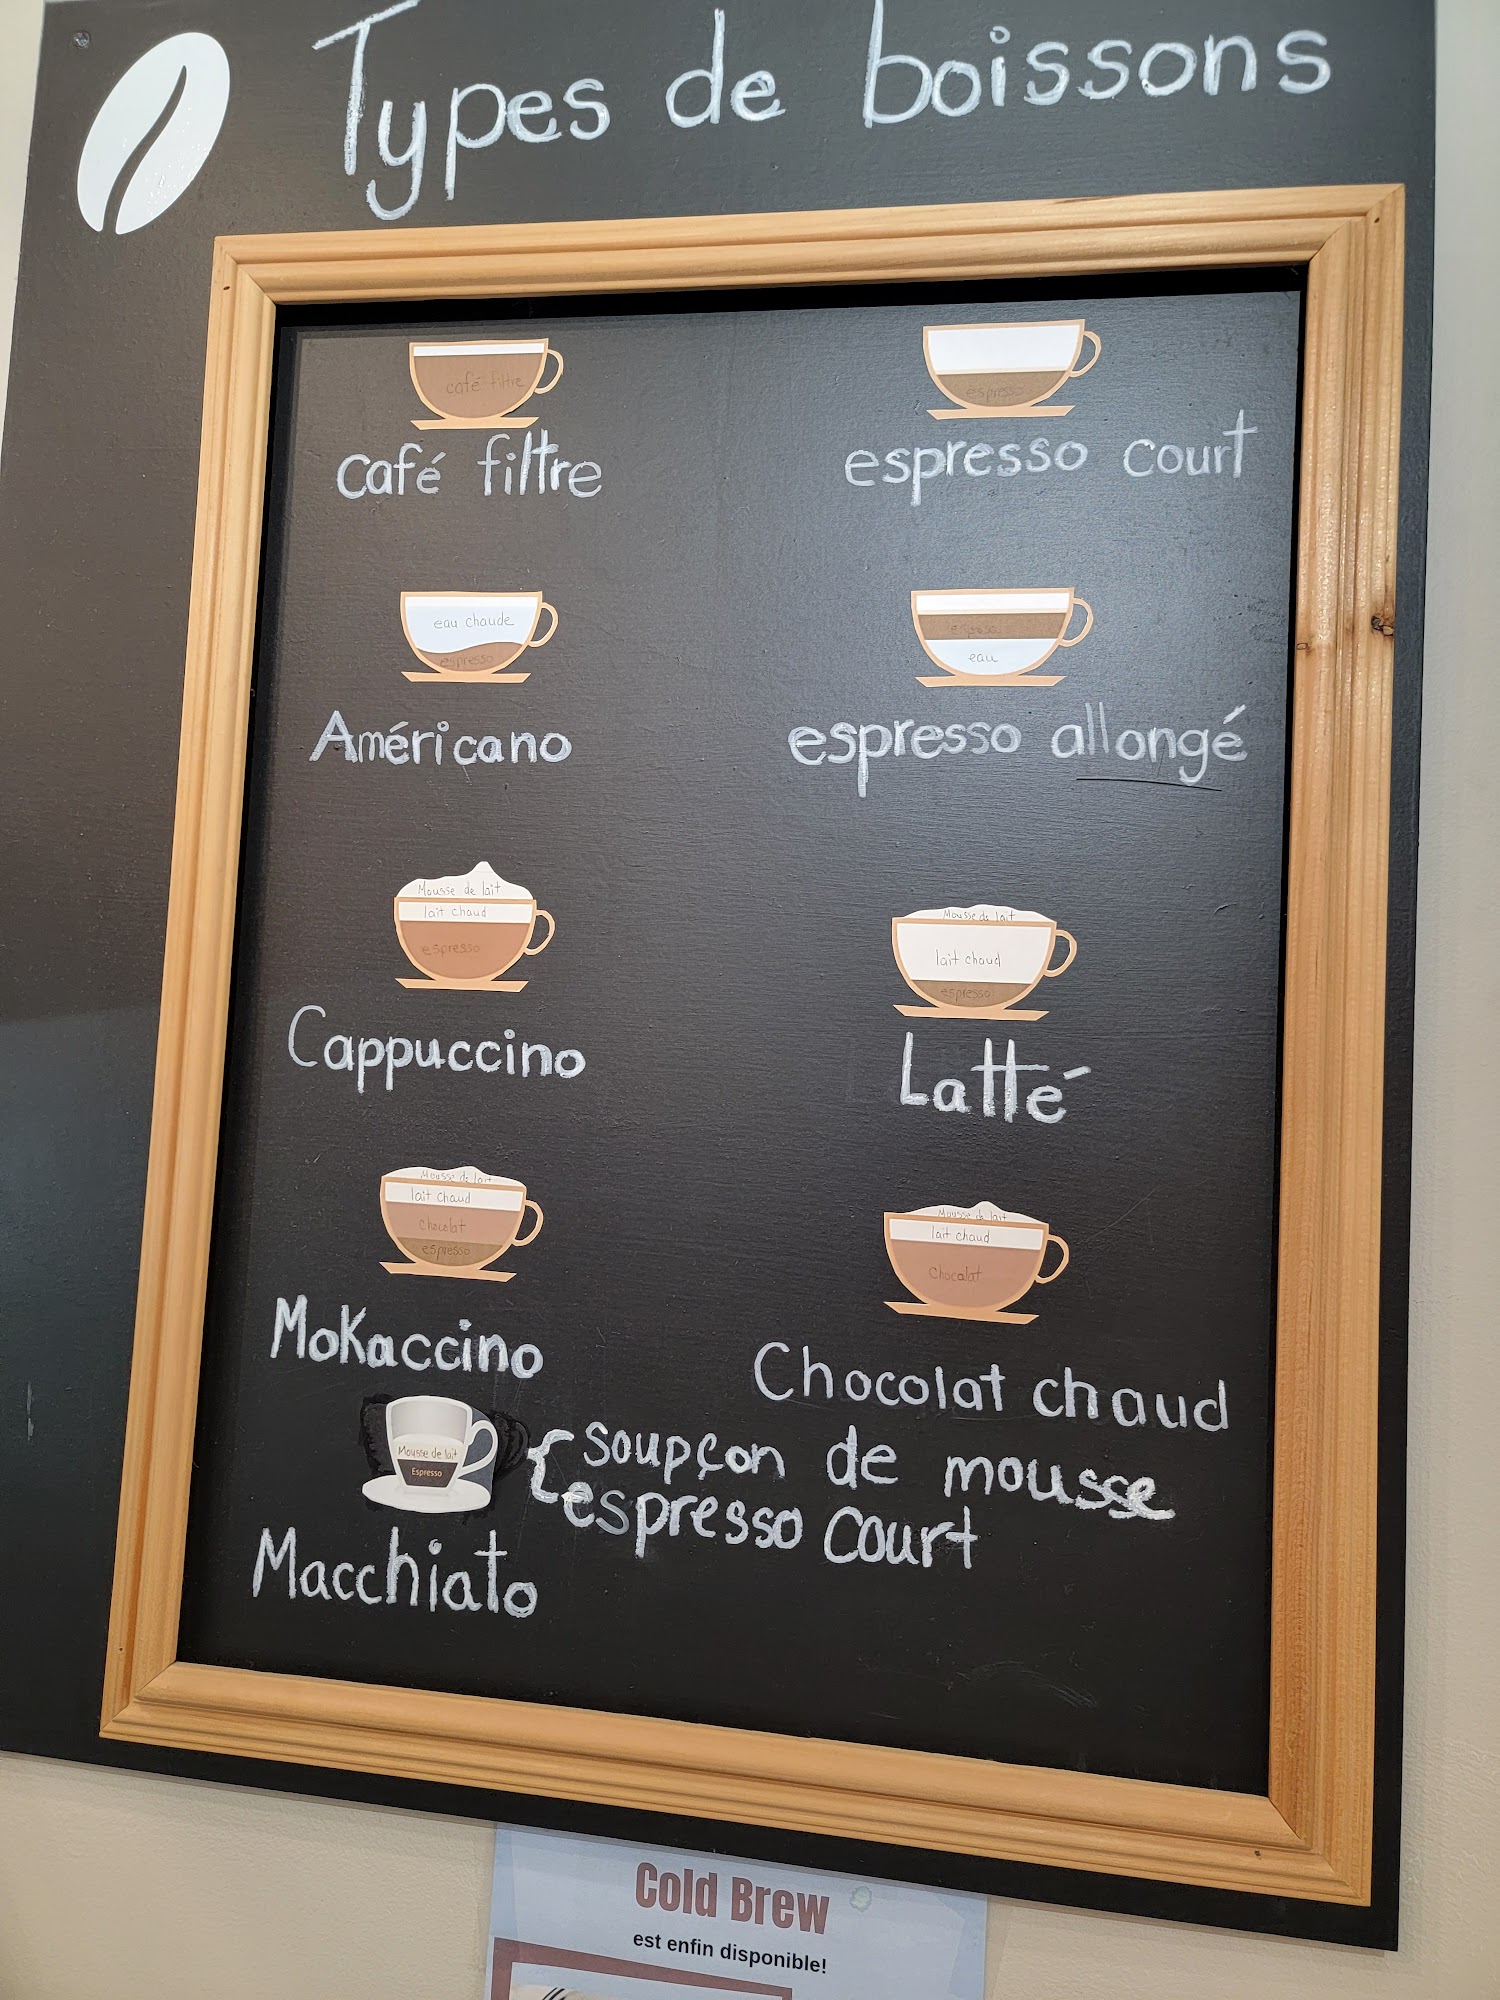 Types de boissons
café filtre
café filtre
espresso
espresso court
eau chaude
espresso
Américano
espresso
eau
espresso allongé
Mousse de lait
lait chaud
espresso
Cappuccino
Mousse de lait
lait chaud
espresso
Latté
Mousse de lait
lait chaud
chocolat
espresso
Mokaccino
Mousse de lait
lait chaud
Chocolat
Chocolat chaud
Mousse de lait
Espresso
{ soupçon de mousse
espresso court
Macchiato
Cold Brew
est enfin disponible!